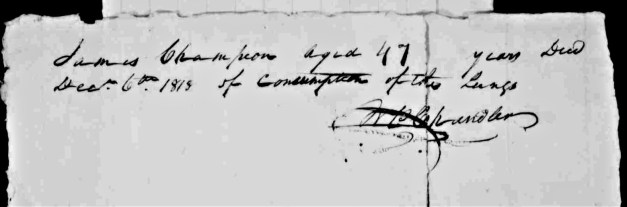 James Champion aged 47 years Died
Decr. 6th. 1818 of Consumption of the Lungs
Chandler